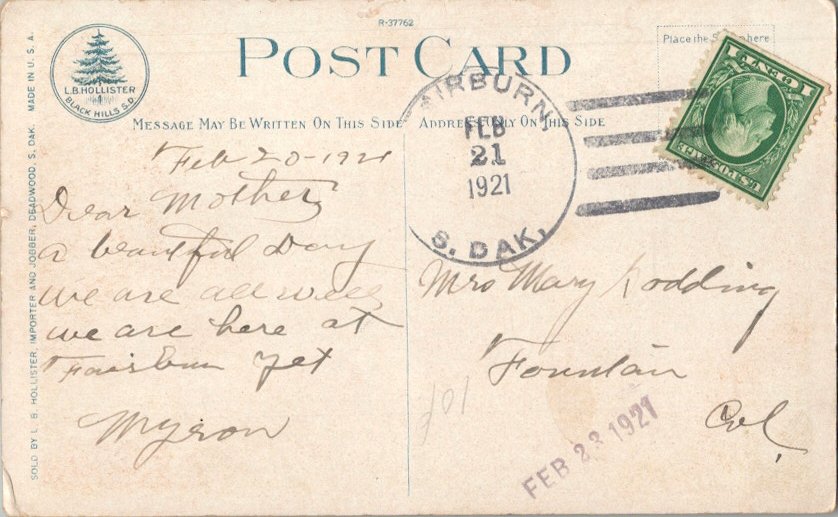 R-37762
POST CARD
Place the Stamp here
L.B. HOLLISTER
BLACK HILLS S.D.
MADE IN U.S.A.
SOLD BY L. B. HOLLISTER, IMPORTER AND JOBBER, DEADWOOD, S. DAK.
MESSAGE MAY BE WRITTEN ON THIS SIDE
ADDRESS ONLY ON THIS SIDE
FAIRBURN,
FEB
21
1921
S. DAK.
1 CENT 1
U.S. POSTAGE
Feb 20-1921
Dear Mother
a beautiful Day
we are all well
we are here at
Fairburn yet
Myron
Mrs Mary Rodding
Fountain
Col,
101
FEB 23 1921